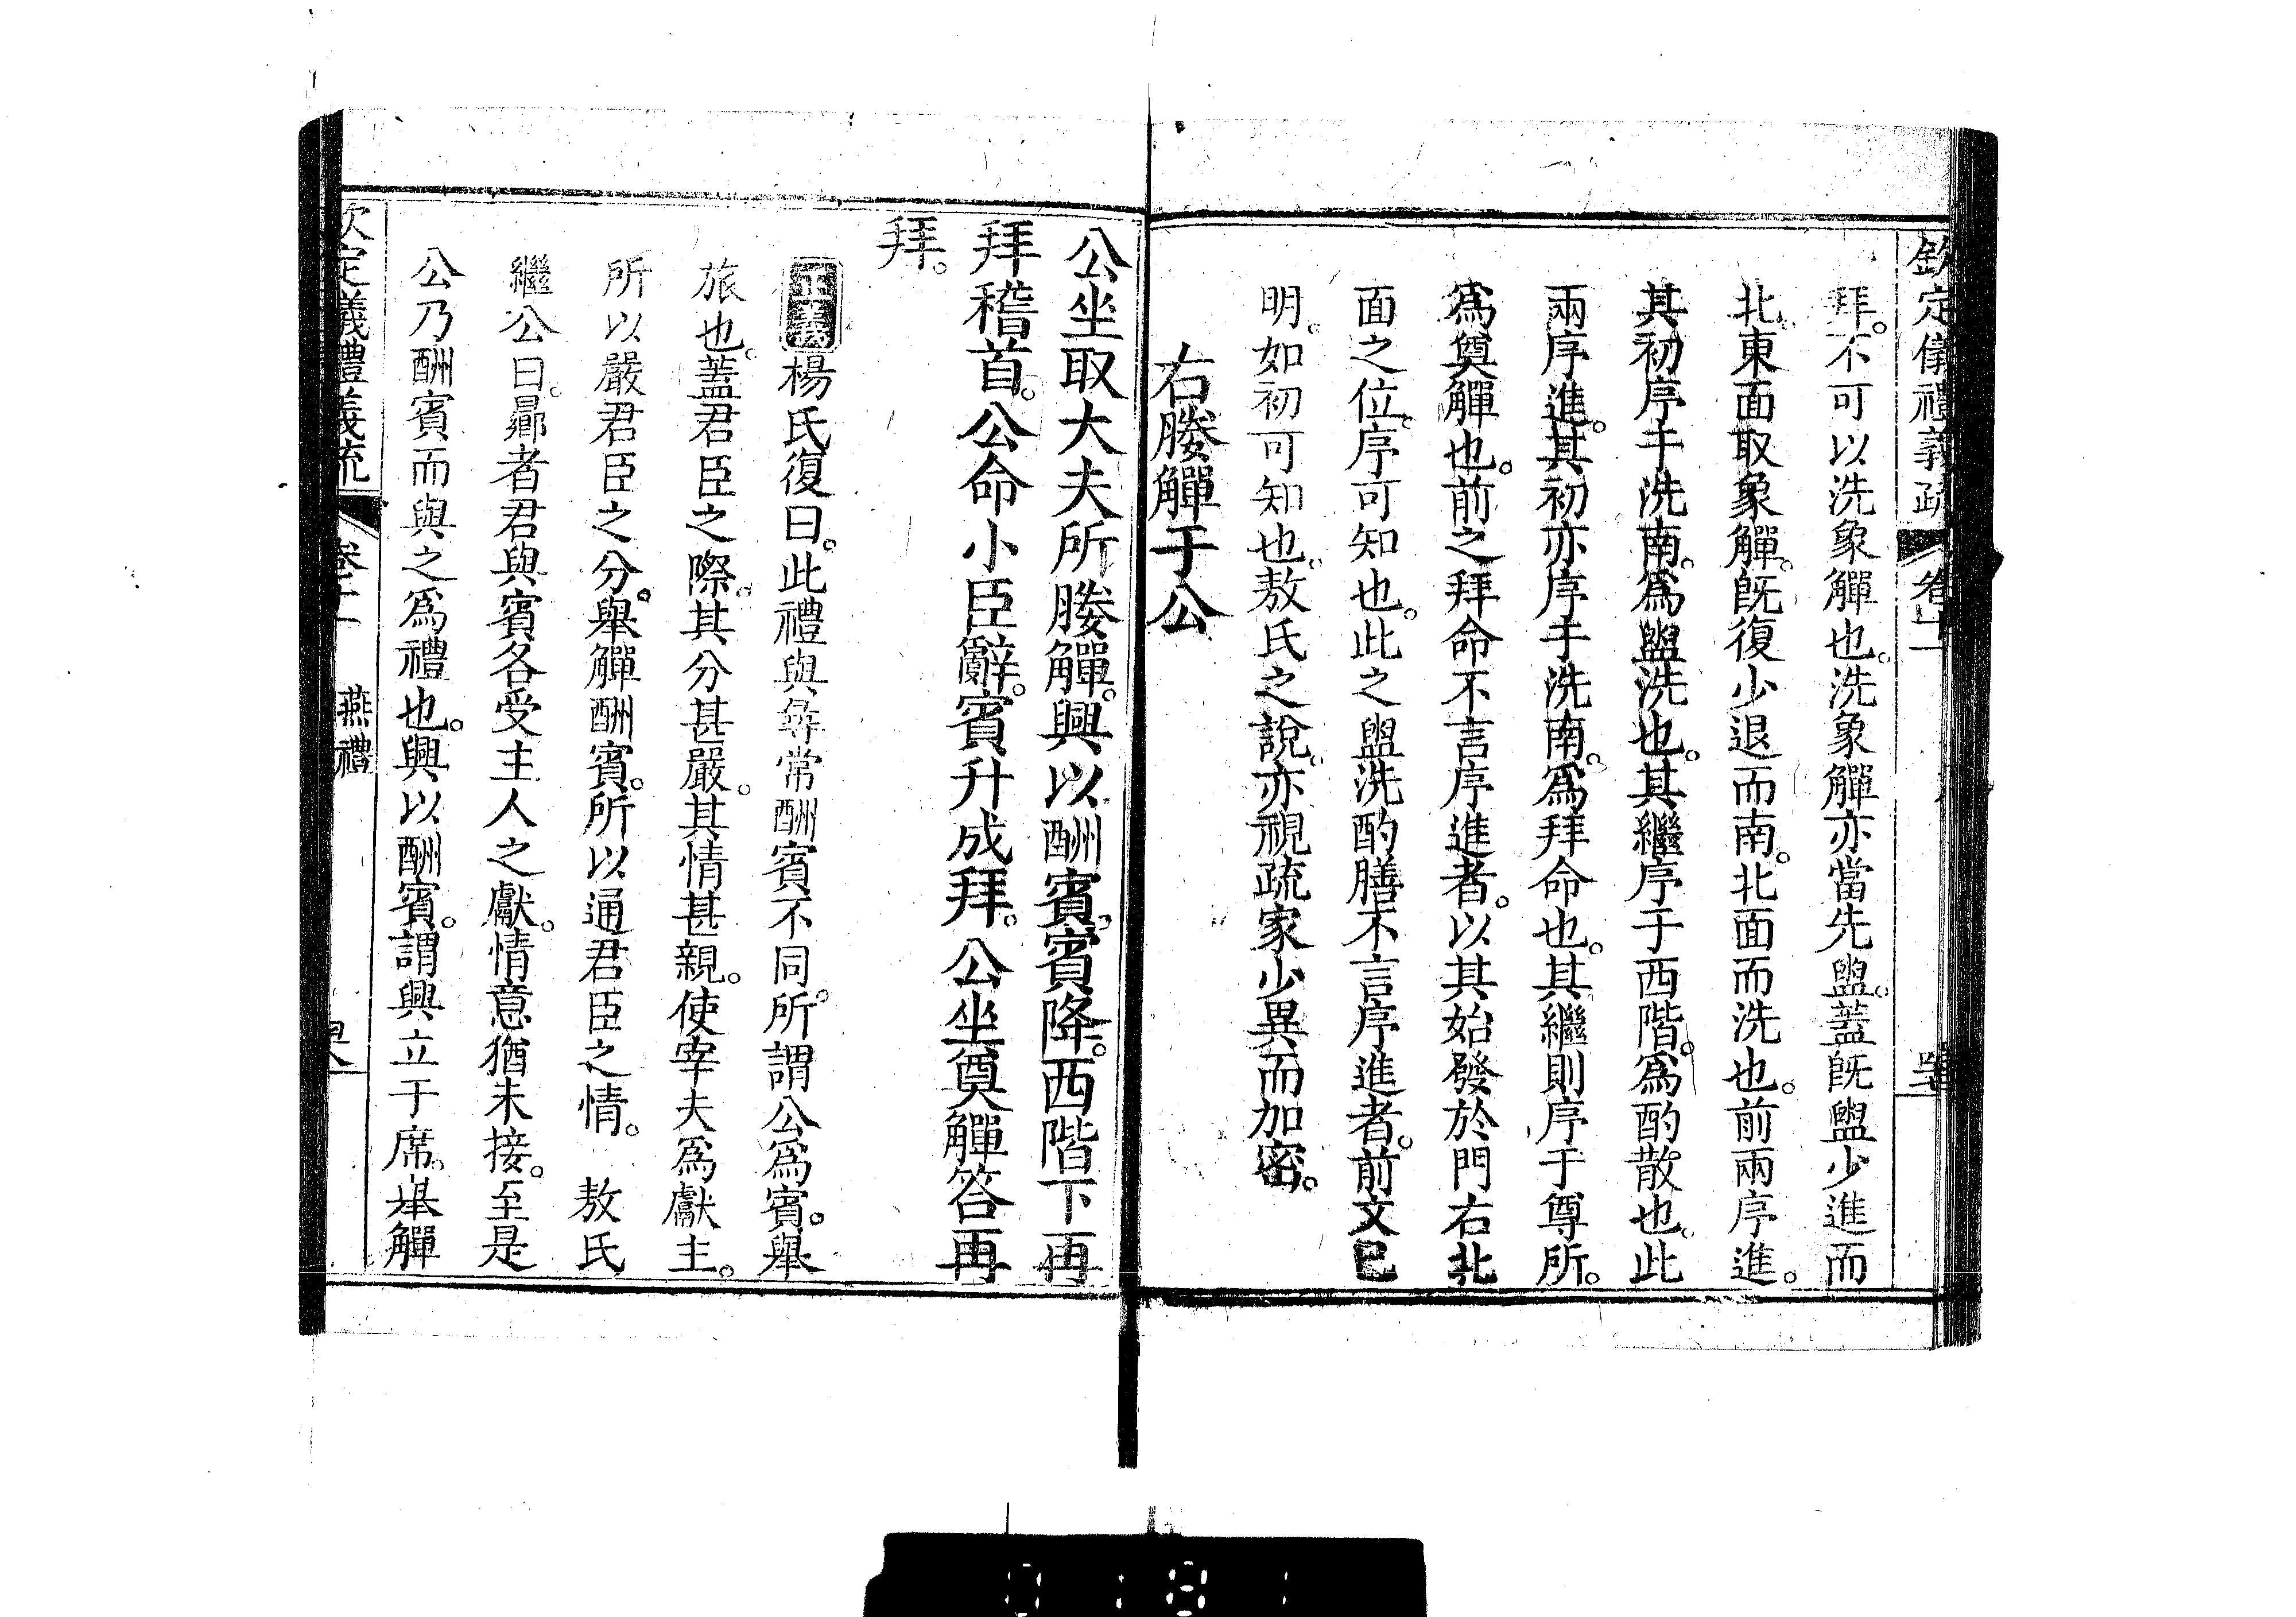 欽定儀禮義疏 卷十一
拜。不可以洗象觶也。洗象觶亦當先盥。蓋旣盥少進而
北。東面取象觶。旣復少退而南。北面而洗也。前兩序進。
其初序于洗南。爲盥洗也。其繼序于西階。爲酌散也。此
兩序進。其初亦序于洗南。爲拜命也。其繼則序于尊所。
爲奠觶也。前之拜命不言序進者。以其始發於門右北
面之位。序可知也。此之盥洗酌膳不言序進者。前文已
明。如初可知也。敖氏之說。亦視疏家少異而加密。
右媵觶于公
公坐取大夫所媵觶。興以酬賓。賓降。西階下再
拜稽首。公命小臣辭。賓升成拜。公坐奠觶答再
拜。
正義 楊氏復曰。此禮與尋常酬賓不同。所謂公爲賓。舉
旅也。蓋君臣之際。其分甚嚴。其情甚親。使宰夫爲獻主。
所以嚴君臣之分。舉觶酬賓。所以通君臣之情。 敖氏
繼公曰。曏者君與賓各受主人之獻。情意猶未接。至是
公乃酬賓而與之爲禮也。興以酬賓。謂興立于席。舉觶
欽定儀禮義疏 卷十一 燕禮